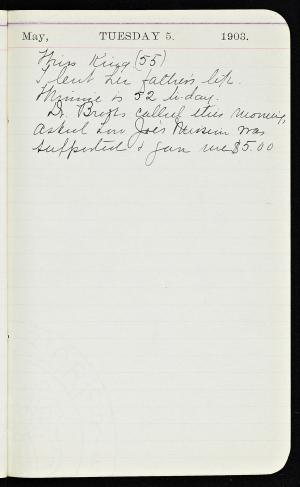 May, TUESDAY 5. 1903.
Miss King (55)
I lent her father's life.
Minnie is 52 to-day.
Dr. Briggs called this morning,
asked how Joe's Mission was
supported & gave me $5.00